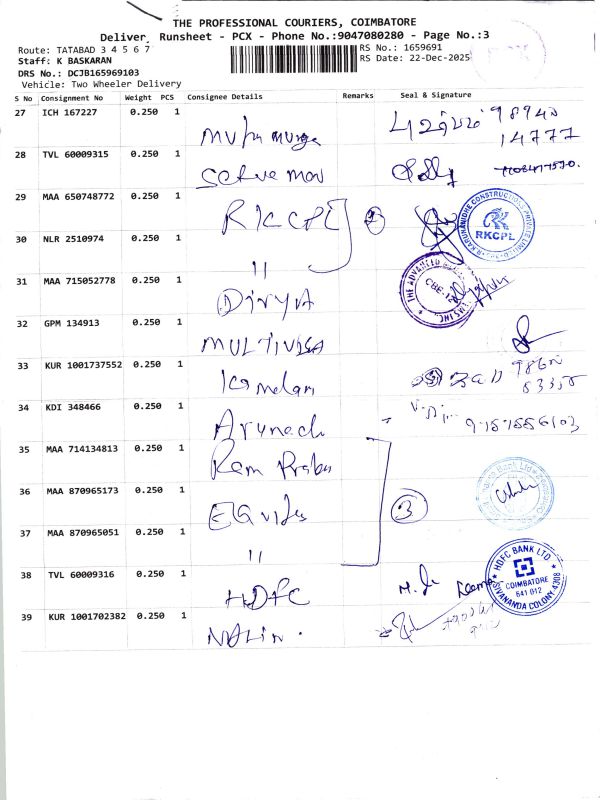 THE PROFESSIONAL COURIERS, COIMBATORE
Deliver Runsheet - PCX - Phone No.:9047080280 - Page No.:3
Route: TATABAD 3 4 5 6 7
RS No.: 1659691
Staff: K BASKARAN
RS Date: 22-Dec-2025
DRS No.: DCJB165969103
Vehicle: Two Wheeler Delivery
S No Consignment No Weight PCS Consignee Details Remarks Seal & Signature
27 ICH 167227 0.250 1 98940
14777
28 TVL 60009315 0.250 1
29 MAA 650748772 0.250 1 RKCPL 2 RKCPL
30 NLR 2510974 0.250 1 "
31 MAA 715052778 0.250 1 DIVYA
32 GPM 134913 0.250 1
33 KUR 1001737552 0.250 1 Kamalam
34 KDI 348466 0.250 1 Arunach
35 MAA 714134813 0.250 1 Ram Prabu
36 MAA 870965173 0.250 1 3
37 MAA 870965051 0.250 1 "
38 TVL 60009316 0.250 1 HDFC
HDFC BANK LTD
COIMBATORE
641 012
SIVANANDA COLONY 4308
39 KUR 1001702382 0.250 1 NALIN.